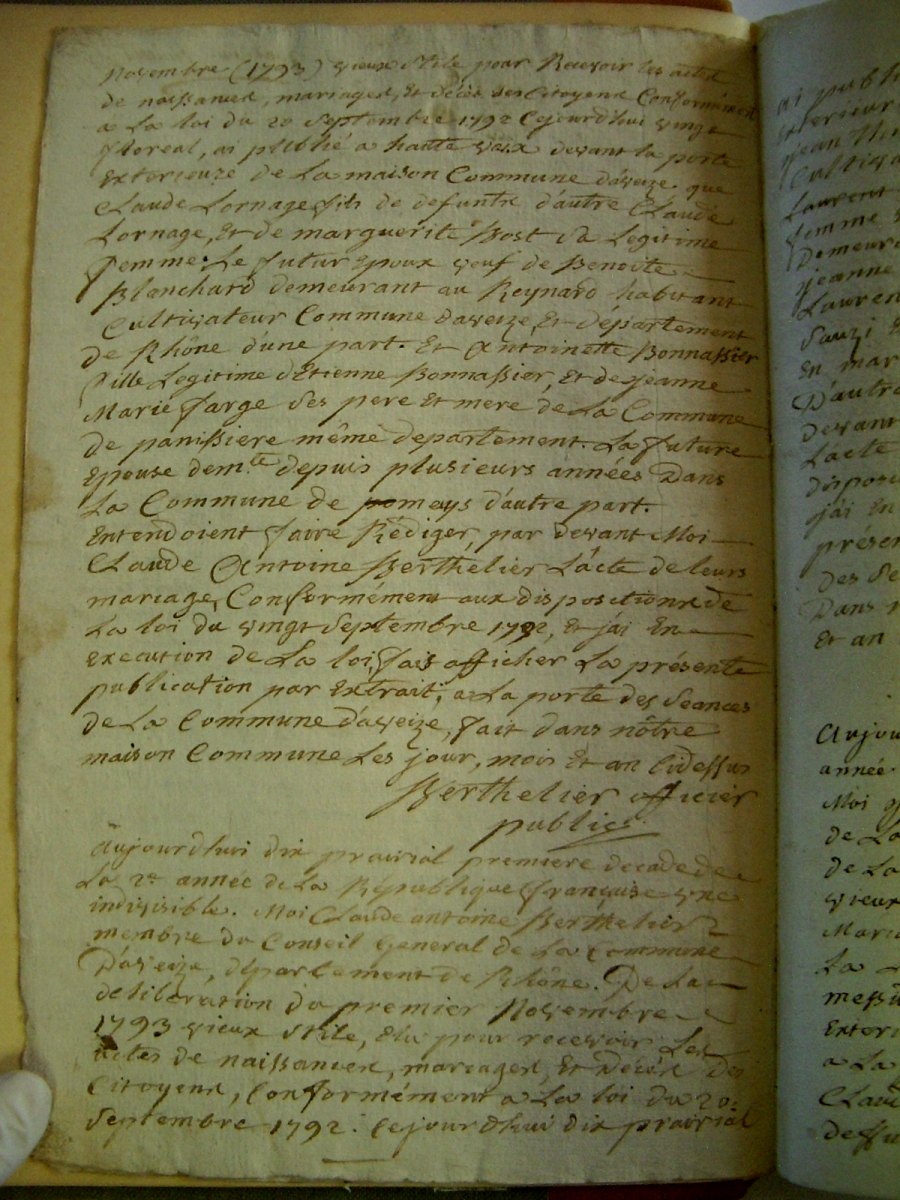 novembre (1793) vieux Stile pour Recevoir les actes
de naissances, mariages, et décès des Citoyens Conformément
a La loi du 20 Septembre 1792 Cejourd'hui vingt
floreal, ai publié a haute voix devant la porte
exterieure de La maison Commune d'aveize que
Claude Lornage fils de defunts d'autre Claude
Lornage, et de marguerite Bost Sa Legitime
femme. Le futur Epoux veuf de Benoite
Blanchard demeurant au Reynard habitant
Cultivateur Commune daveize et département
de Rhône d'une part. Et Antoinette Bonnassier
fille Legitime d'Etienne Bonnassier, et de jeanne
Marie farge Ses pere et mere de La Commune
de panissiere même departement. La future
Epouse dem.te depuis plusieurs années Dans
La Commune de pomeys d'autre part.
Entendoient faire Rédiger, par devant Moi
Claude Antoine Berthelier L'acte de leurs
mariage, Conformement aux dispositions de
La loi du vingt Septembre 1792, et jai En
execution de La loi, fais afficher La présente
publication par Extrait, a La porte des Seances
de La Commune d'aveize, fait dans nôtre
maison Commune Les jour, mois et an Cidessus
Berthelier officier
public
aujourdhui dix prairial premiere decade de
La 2e année de La République française une
indivisible. Moi Claude antoine Berthelier
membre du Conseil General de La Commune
D'aveize, département de Rhône. De La
deliberation du premier Novembre
1793 vieux Stile, elu pour recevoir Les
actes de naissances, mariages, et Décès des
Citoyens, Conformément a La loi du 20
Septembre 1792. Cejourd'hui dix prairial
ai publi
exterieur
jean
Cultiva
Laurent
femme
Demeura
jeanne
Lauren
Sauzi
En mar
D'autre
devant
L'acte
disposi
j'ai En
présen
des Se
Dans n
Et an
Aujour
année
Moi
de La
de La
vieux
Maria
La
messi
Exteri
a La
Claud
deffu